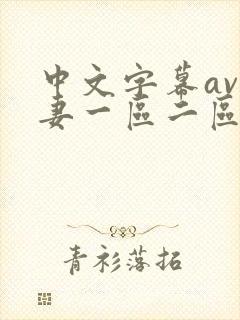 中文字幕av
妻一區二區
青衫落拓